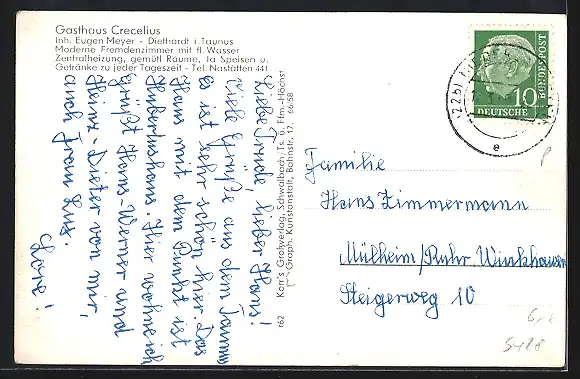 Gasthaus Crecelius
Inh. Eugen Meyer - Diethardt i. Taunus
Moderne Fremdenzimmer mit fl. Wasser
Zentralheizung, gemütl. Räume, Ia Speisen u.
Getränke zu jeder Tageszeit - Tel. Nastätten 441
Liebe Trude, lieber Hans!
Viele Grüße aus dem Taunus
es ist sehr schön hier Das
Haus mit dem Punkt ist
Hubertushaus. Hier wohne ich
grüßt Hans-Werner und
Heinz-Dieter von mir,
auch Frau
r62 Karr's Grafverlag, Schwalbach, Ts. u. Ffm.-Höchst
Graph. Kunstanstalt, Bahnstr. 17. 66/58
Familie
Hans Zimmermann
Mülheim/Ruhr Winkhausen
Steigerweg 10
10
DEUTSCHE
BUNDESPOST
(22b)
e
5428